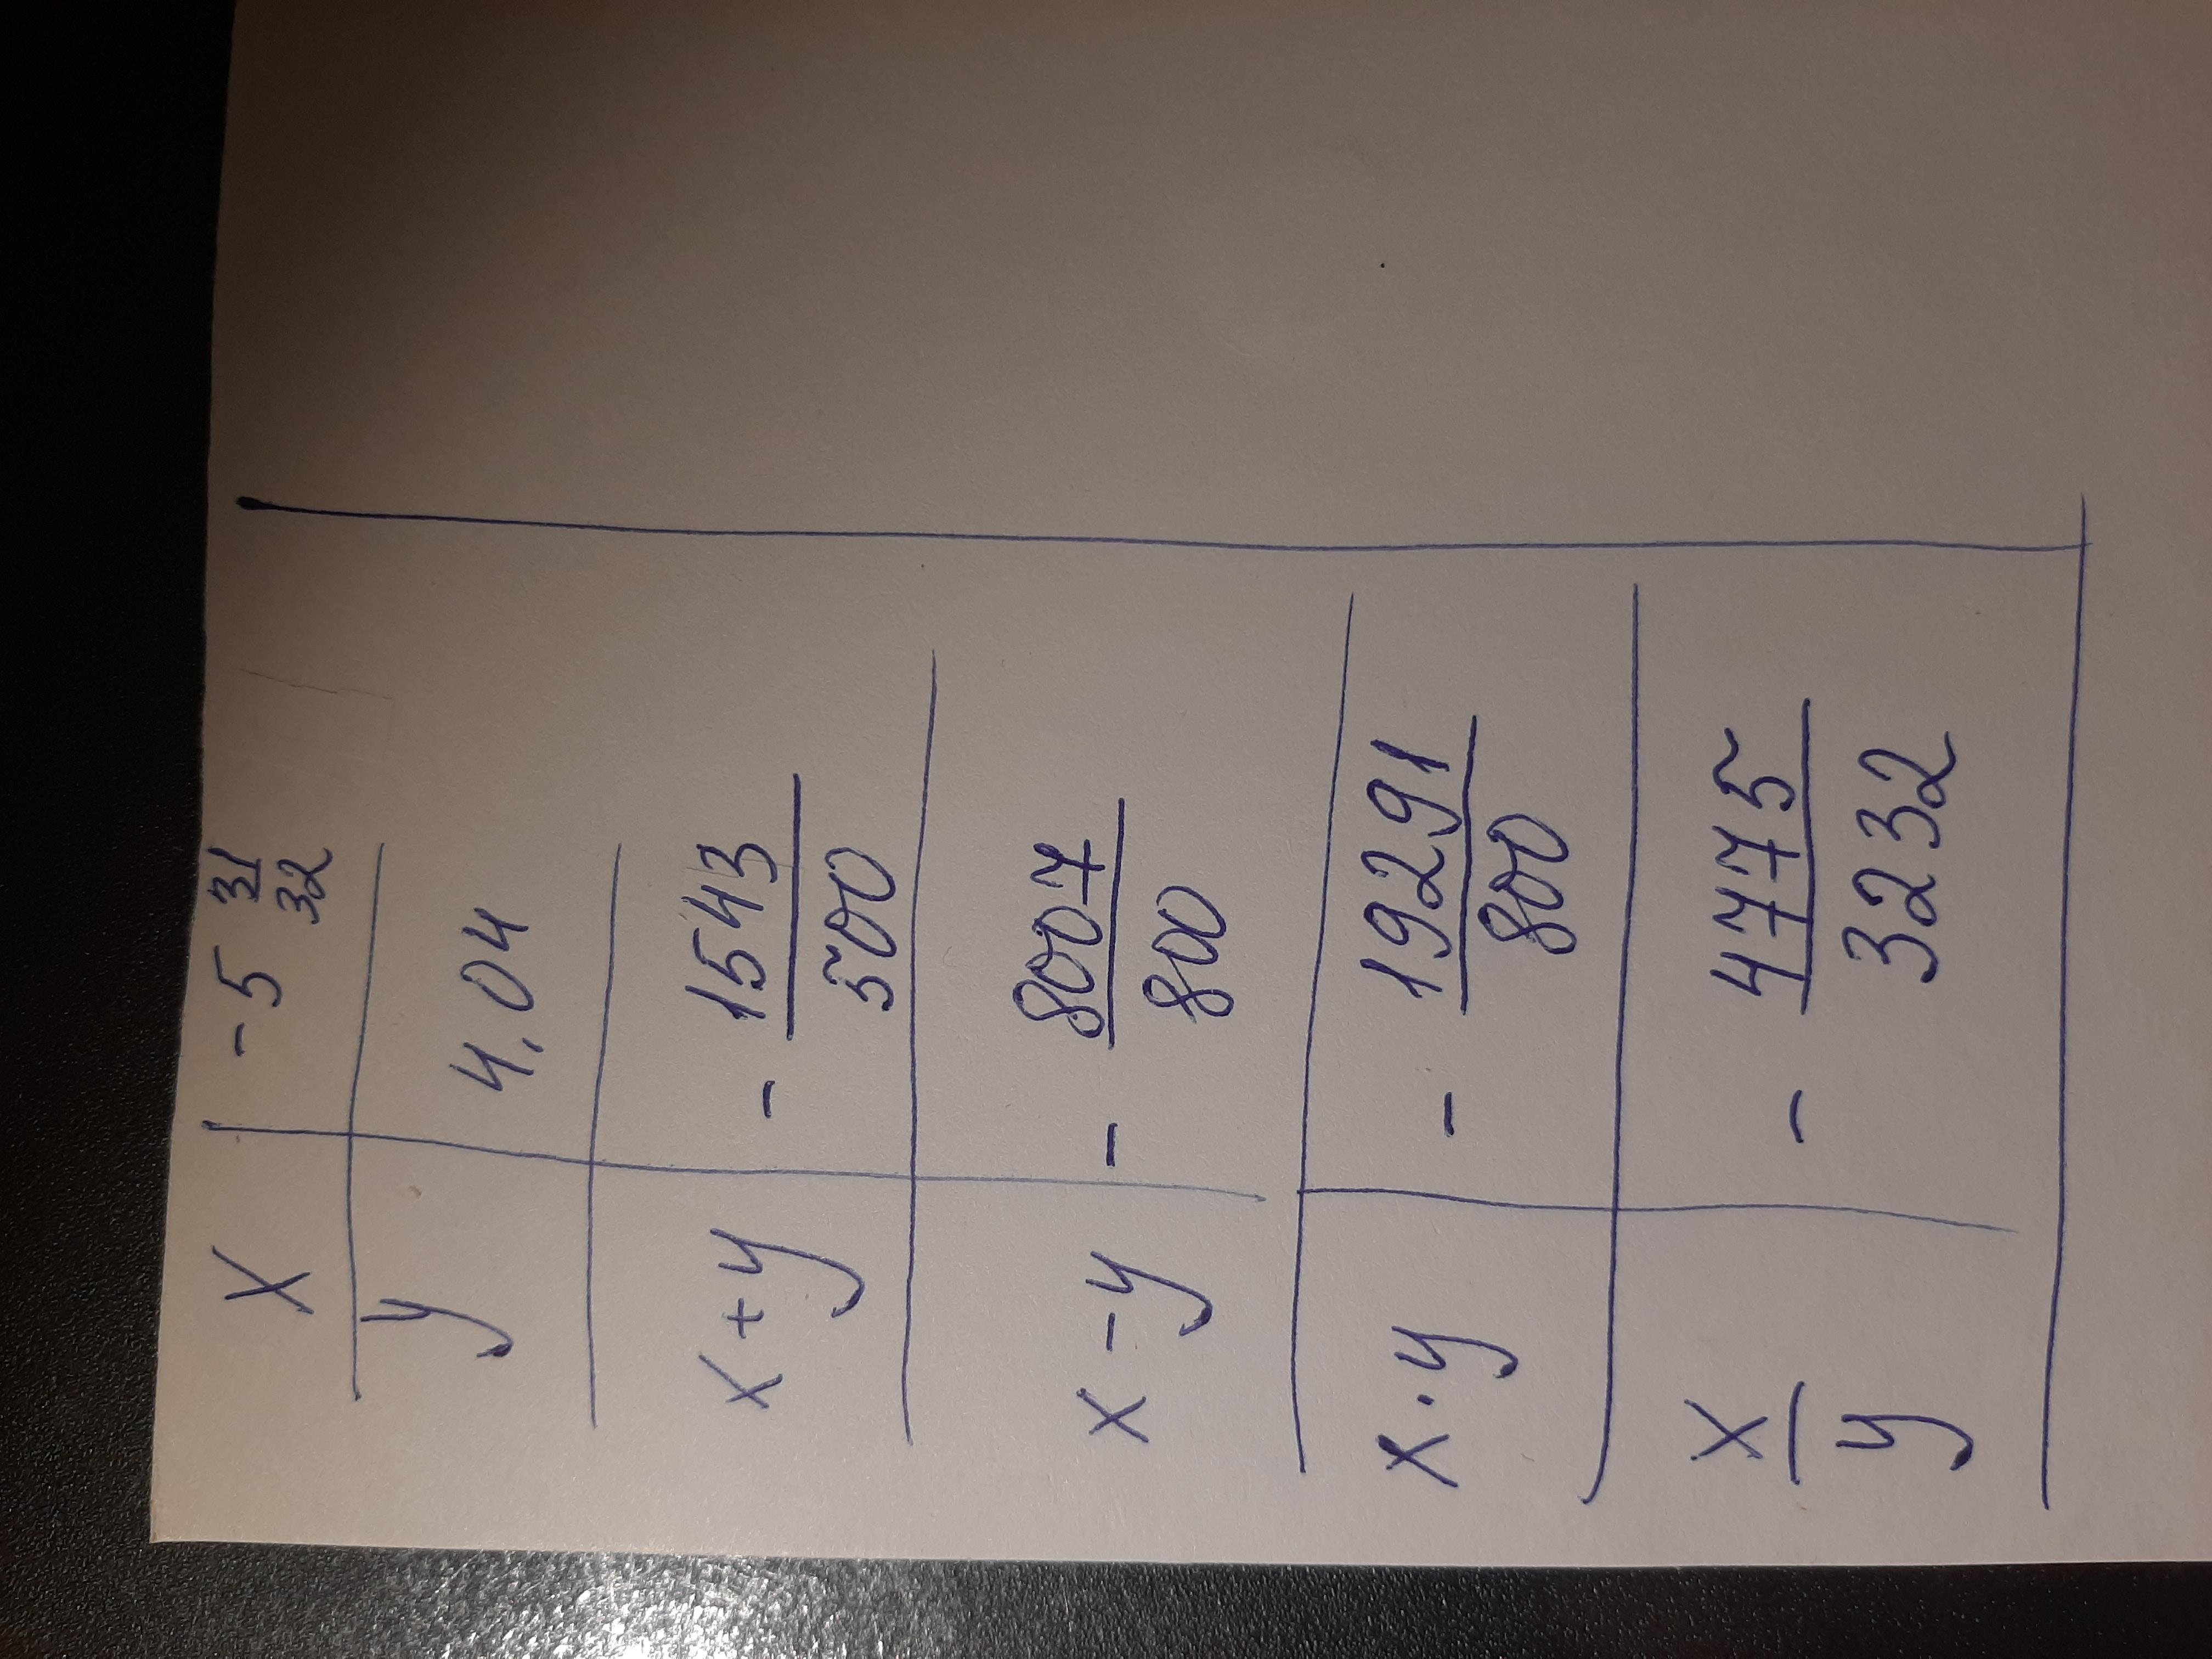 x | -5 31/32
y | 4.04
x+y | - 1543/500
x-y | - 8007/800
x·y | - 19291/800
x/y | - 4775/3232